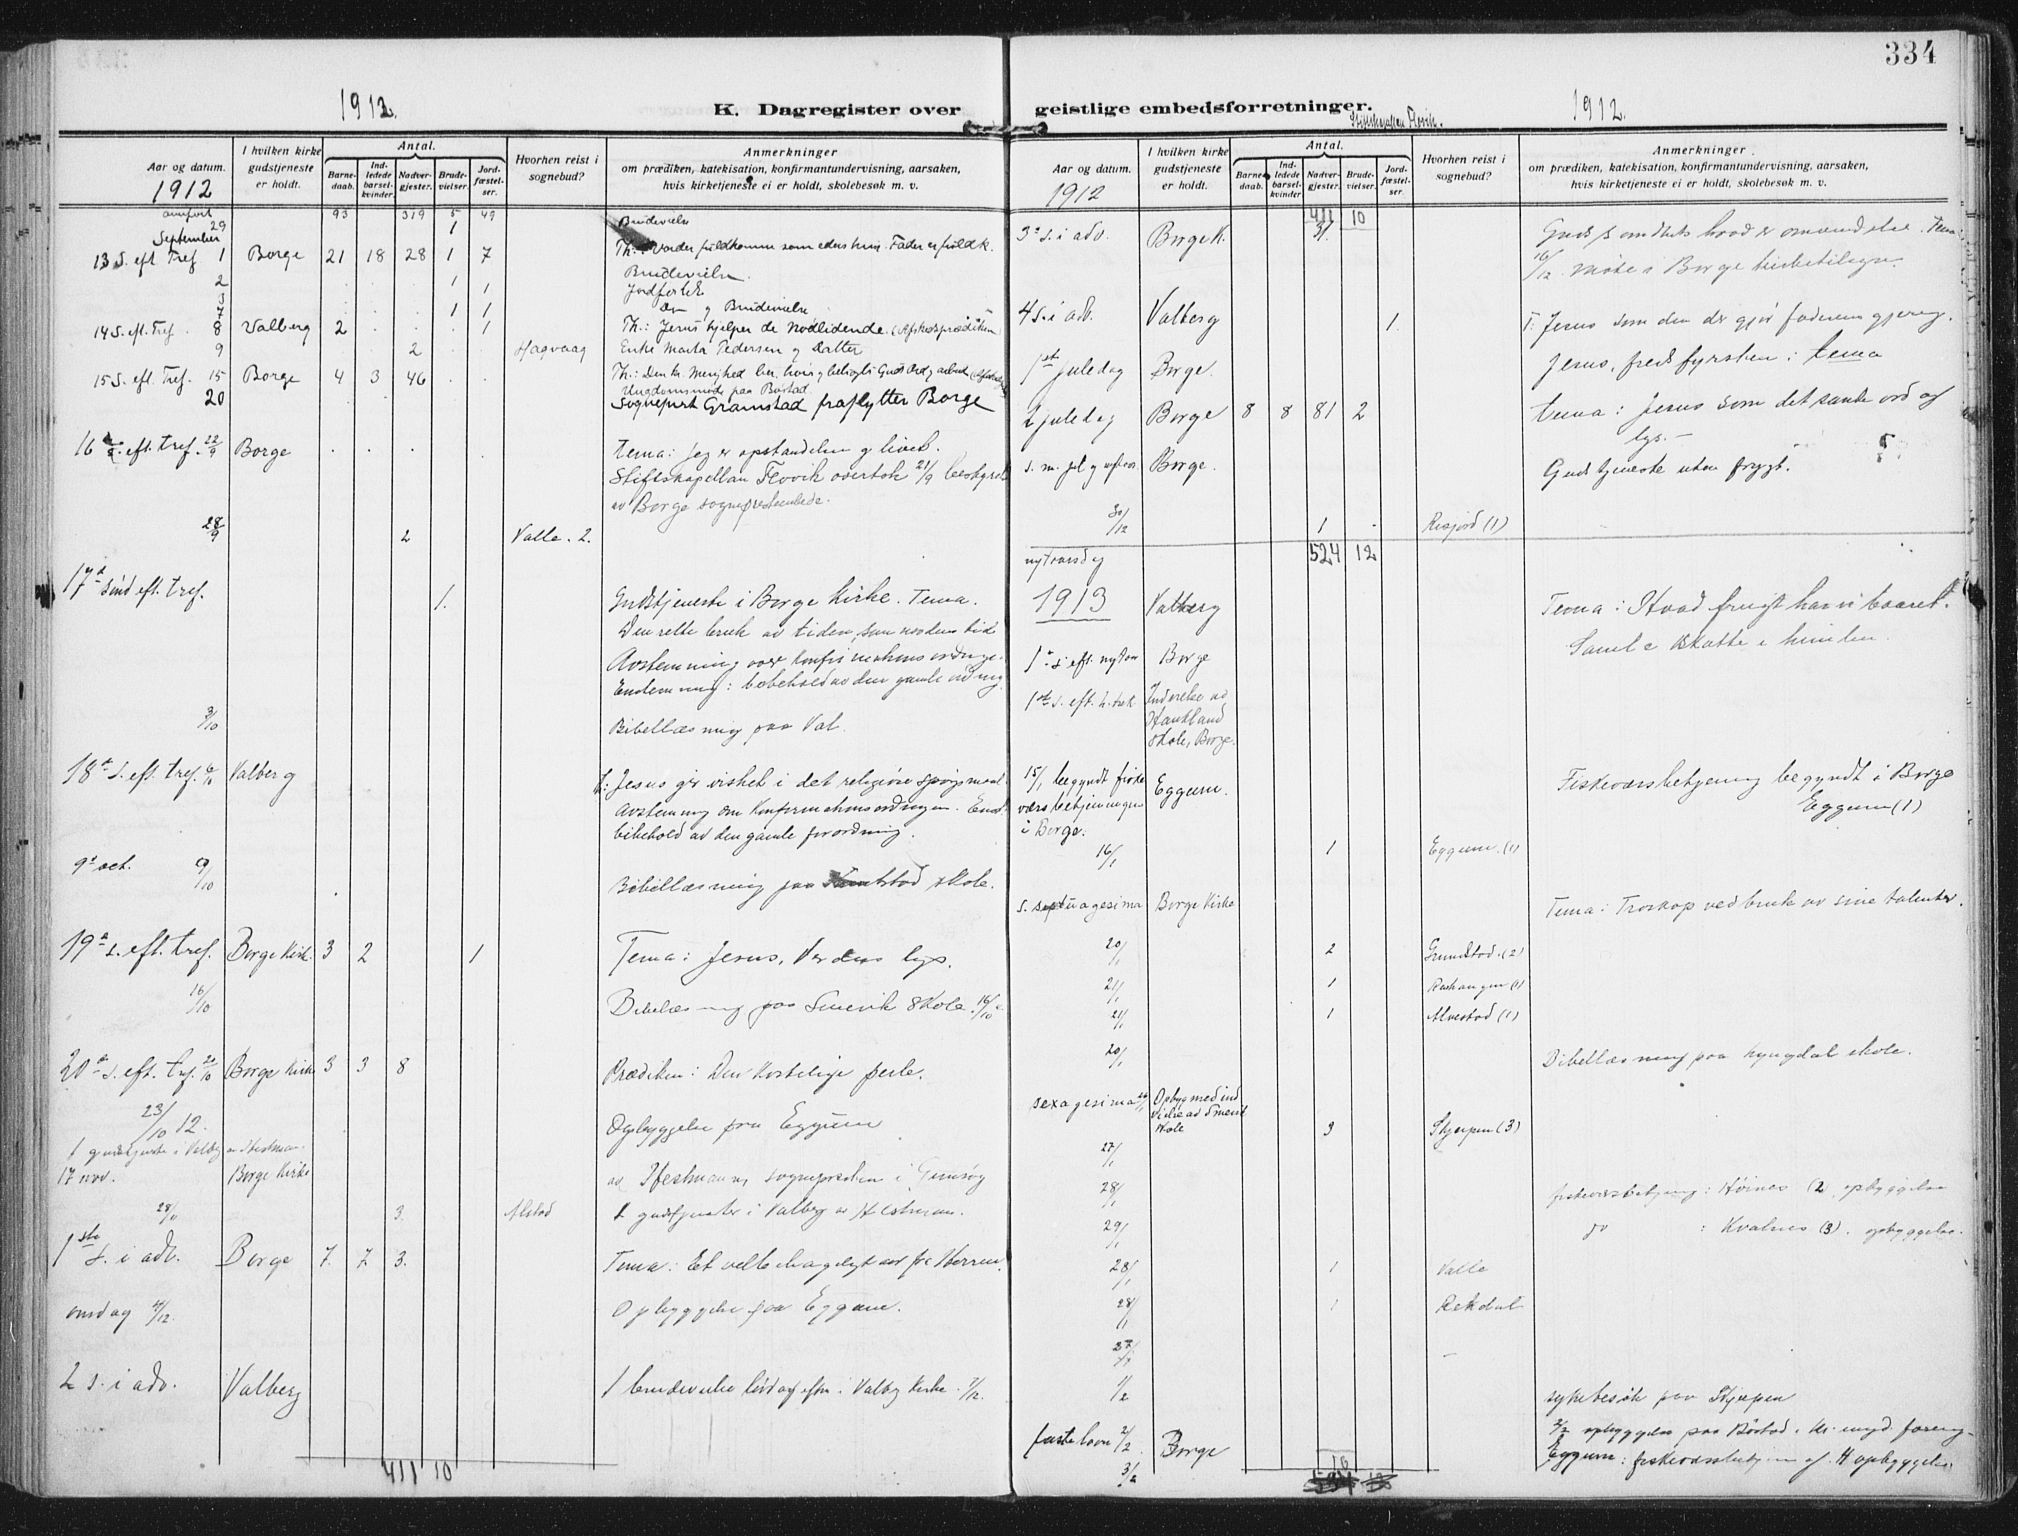 334
1912.
K. Dagregister over
geistlige embedsforretninger.
1912.
Aar og datum.
1912
I hvilken kirke gudstjeneste er holdt.
Antal.
Barnedaab.
Indledede barselkvinder.
Nadvergjester.
Brudevielser.
Jordfæstelser.
Hvorhen reist i sognebud?
Anmerkninger
om prædiken, katekisation, konfirmantundervisning, aarsaken,
hvis kirketjeneste ei er holdt, skolebesøk m. v.
93 319 5 49
29 1 Brudevielse
September
13 S. eft. Tref 1 Borge 21 18 28 1 7 Th: Vorder fuldkomne som eders him. Fader er fuldk.
2 1 1 Brudevielse.
3 Jordfæstelse
7 1 1 Do og Brudevielse
14 S. eft. Tref. 8 Valberg 2 1 Th.: Jesus hjelper de Nødlidende. (Afskedsprædiken
9 2 Hagvaag Enke Marta Pedersen og Datter
15 S. eft. Tref. 15 Borge 4 3 46 Th.: Den kr. Menighed
Ungdomsmøde paa Bøstad
20 Sogneprest Gramstad fraflytter Borge
16 s. eft. tref. 22/9 Borge Tema: Jeg er opstandelsen og livet.
Stiftskapellan Flovik overtok 21/9 bestyrelse
av Borge sogneprestembede.
28/9 2 Valle. 2.
17 sønd eft. tref. 1. Gudstjeneste i Borge Kirke. Tema.
Den rette bruk av tiden, som naadens tid
Avstemning over konfirmationsordninge.
Enstemmig: bebehold av den gamle ordning.
3/10 Bibellæsning paa Val.
18 s. eft. tref. 6/10 Valberg t: Jesus gir vished i det religiøse spørgsmaal.
Avstemning om Konfirmationsordningen. Enst.
bibehold av den gamle forordning.
9 oct. 9/10 Bibellæsning paa skole.
19 s. eft. tref. Borge Kirk. 3 2 1 Tema: Jesus, Verdens lys.
16/10 Bibellæsning paa Smevik Skole. 16/10
20 s. eft. tref. 20/10 Borge Kirke 3 3 8 Prædiken: Den kostelige perle.
23/10 12. Opbyggelse paa Eggum
1 gudstjeneste i Valbg av Hestman.
17 nov. Borge Kirke av Hestmann, sogneprest i Gimsøy
28/11 3. Alstad 1 gudstjeneste i Valberg av Hestman.
1ste s. i adv. Borge 7. 7 3. Tema: Et velbehageligt aar fra Herren.
onsdag 4/12. Opbyggelse paa Eggum.
2 s. i adv. Valberg 1 brudevielse lørdag efter i Valbg Kirke. 7/12.
411 10
Stiftskapellan Flovik.
Aar og datum.
1912
I hvilken kirke gudstjeneste er holdt.
Antal.
Barnedaab.
Indledede barselkvinder
Nadvergjester.
Brudevielser.
Jordfæstelser.
Hvorhen reist i sognebud?
Anmerkninger
om prædiken, katekisation, konfirmantundervisning, aarsaken,
hvis kirketjeneste ei er holdt, skolebesøk m. v.
411 10
3 s. i adv. Borge K. 31. omvendelse. Tema:
16/12 møte i Borge kirketilsyn.
4 s. i adv. Valberg 1. T: Jesus som den der gjør faderens gjerning.
1ste juledag Borge. Jesus, fredsfyrsten: tema
2 juledag Borge 8 8 81 2 tema: Jesus som det sande ord og
lys. –
s. m. jul og nytaar Borge. Gudstjeneste uten frygt.
30/12 1 Risjord (1)
524 12
nytaarsdag
1913 Valberg Tema: Hvad frugt har vi baaret.
1 s eft. nytaar Borge Samle skatte i himlen.
1ste s. eft. h. trek Indvielse av
Haukland
skole, Borge.
15/1 begyndt fiske Eggum. Fiskeværsbetjening begyndt i Borge
værsbetjeningen Eggum (1)
i Borge.
16/1 1 Eggum. (1)
s. septuagesima Borge Kirke Tema: Troskap ved bruk av sine talenter.
20/1 2 Grundstad. (2)
21/1 1
21/1 1 Alvestad (1)
20/1 Bibellæsning paa Lyngdal skole.
sexagesima 26/1 Opbyg med ind
vielse av Smerit
skole 3 Skjerpen (3)
27/1
28/1 fiskeværsbetjening: Høines (2) opbyggelse
29/1 do : Kvalnes (3). opbyggelse.
28/1 1 Valle
28/1 1 Rekdal
1/2 sykebesøk paa Skjerpen
2/2 opbyggelse paa Bøstad. Kr. ungd. forening.
fastelavn 2/2 Borge Eggum: fiskeværsbetjen opbyggelse
3/2
16